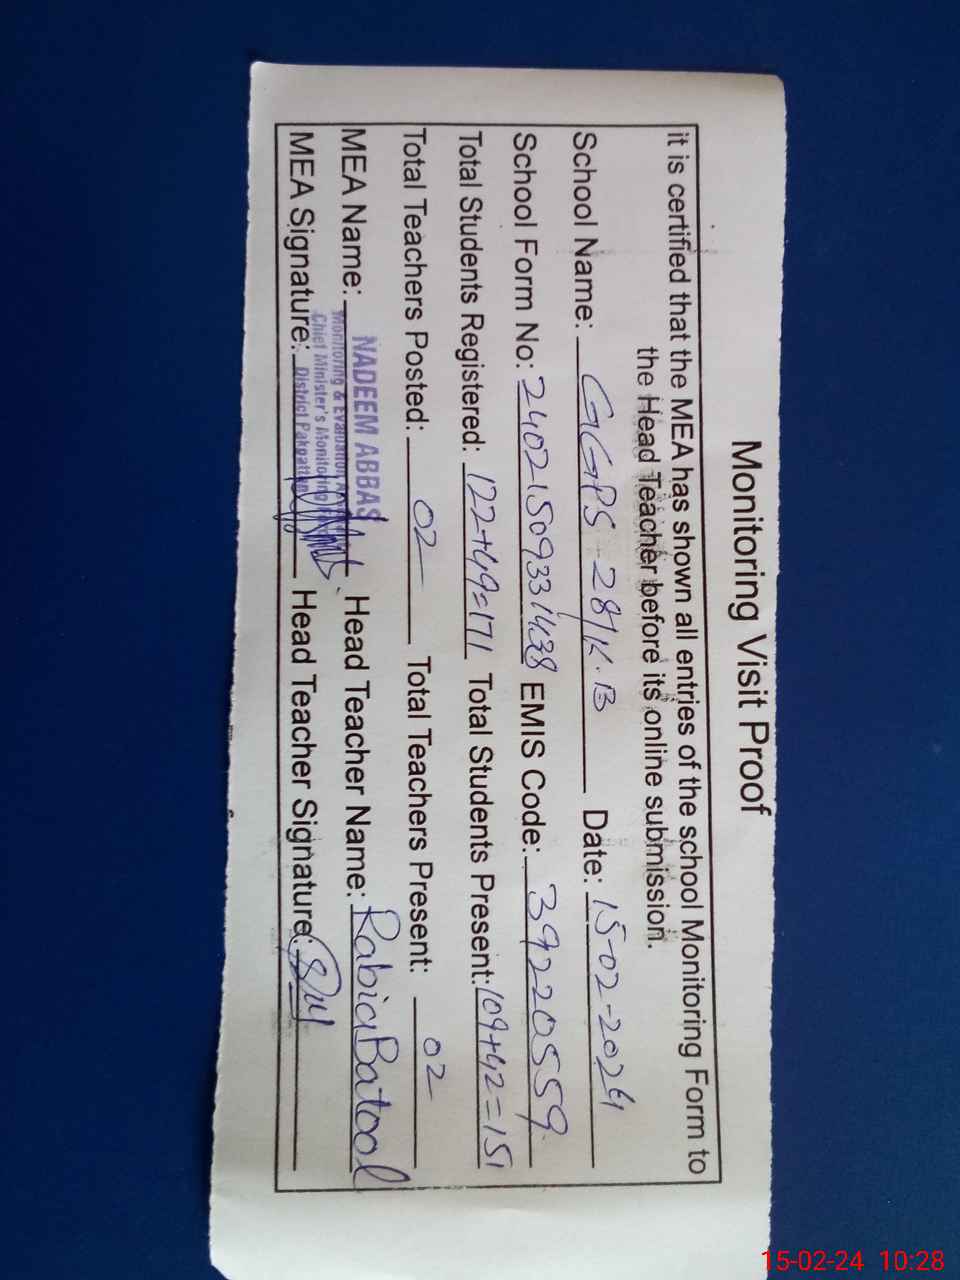 Monitoring Visit Proof
it is certified that the MEA has shown all entries of the school Monitoring Form to
the Head Teacher before its online submission.
School Name: GGPS 28/K.B Date: 15-02-2024
School Form No: 24021509331438 EMIS Code: 39220559
Total Students Registered: 122+49=171 Total Students Present: 109+42=151
Total Teachers Posted: 02 Total Teachers Present: 02
MEA Name: NADEEM ABBAS Head Teacher Name: Rabia Batool
Monitoring & Evaluation
Chief Minister's Monitoring
District Pakpattan
MEA Signature: Head Teacher Signature:
15-02-24 10:28